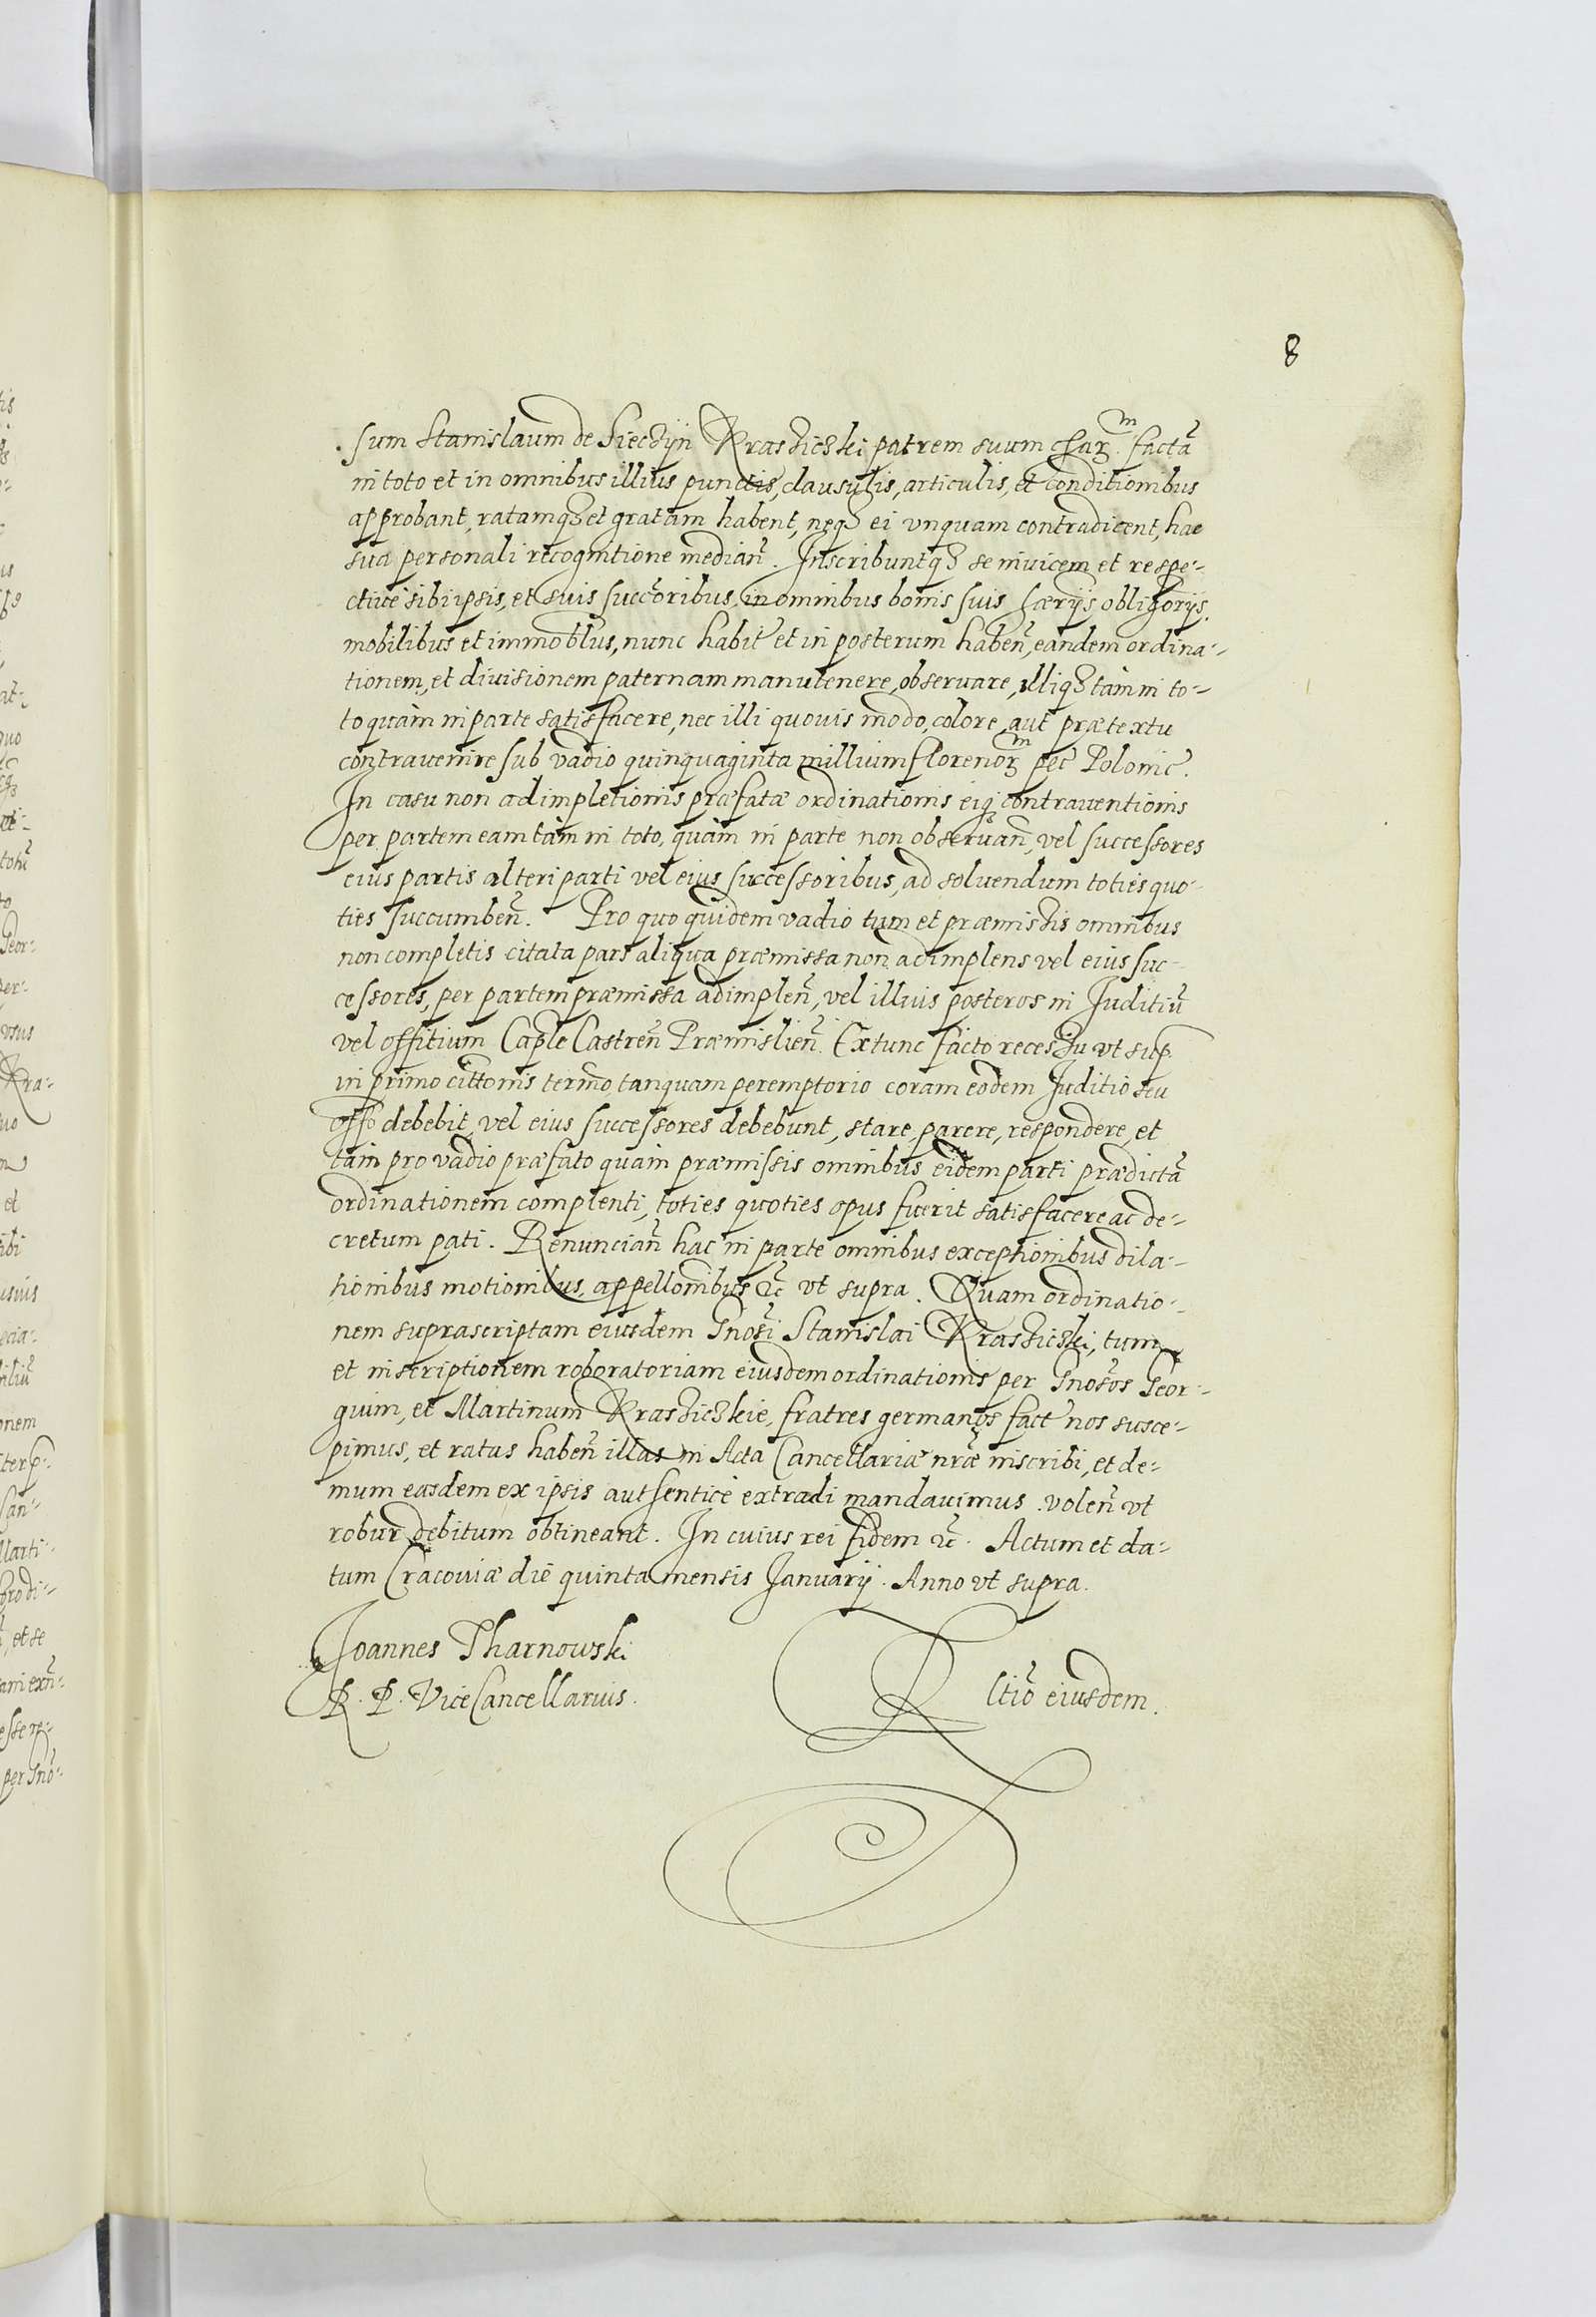 8
sum Stanislaum de Sieczijn Krasziczki patrem suum char̃m factã
in toto et in omnibus illius punctis, clausulis, articulis, et conditionibus
approbant, ratamqꝫ et gratam habent, neqꝫ ei vnquam contradicent, hac
sua personali recognitione median̄. Inscribuntqꝫ se invicem et respe-
ctivè sibi ipsis, et suis succ̄oribus, in omnibus bonis suis hærijs obligorijs,
mobilibus et immoblus, nunc habit̄ et in posterum haben̄, eandem ordina-
tionem, et divisionem paternam manutenere, observare, illiqꝫ tàm in to-
to quàm in parte satisfacere, nec illi quovis modo, colore, aut prætextu
contravenire sub vadio quinquaginta millium florenor̃m pec̄ Polonic̄.
In casu non adimpletionis præfatæ ordinationis eiqꝫ contraventionis
per partem eam tàm in toto, quàm in parte non observan̄, vel successores
eius partis alteri parti vel eius successoribus, ad solvendum toties quo-
ties succumben̄. Pro quo quidem vadio tum et præmissis omnibus
non completis citata pars aliqua præmissa non adimplens vel eius suc-
cessores, per partem præmissa adimplen̄, vel illius posteros in Juditiū
vel offitium Caple Castren̄ Præmislien̄. Extunc facto recessu vt sup.
in primo cittonis termo, tanquam peremptorio coram eodem Juditio seu
offo debebit, vel eius successores debebunt, stare, parere, respondere, et
tàm pro vadio præfato quàm præmissis omnibus eidem parti prædictã
ordinationem complenti, toties quoties opus fuerit satisfacere ac de-
cretum pati. Renuncian̄ hac in parte omnibus exceptionibus dila-
tionibus motionibus, appellonibus &c̄ vt supra. Quam ordinatio-
nem suprascriptam eiusdem Gnosi Stanislai Krasziczki, tum
et inscriptionem roboratoriam eiusdem ordinationis per Gnosos Geor-
gium, et Martinum Krasziczkie, fratres germanos fact̄ nos susce-
pimus, et ratas haben̄ illas in Acta Cancellariæ nr̃æ inscribi, et de-
mum easdem ex ipsis authenticè extradi mandavimus. volen̄ vt
robur debitum obtineant. In cuius rei fidem &c̄. Actum et da-
tum Cracoviæ die quinta mensis Januarij. Anno vt supra.
Joannes Tharnowski
R. P. ViceCancellarius.
Rltiō eiusdem.